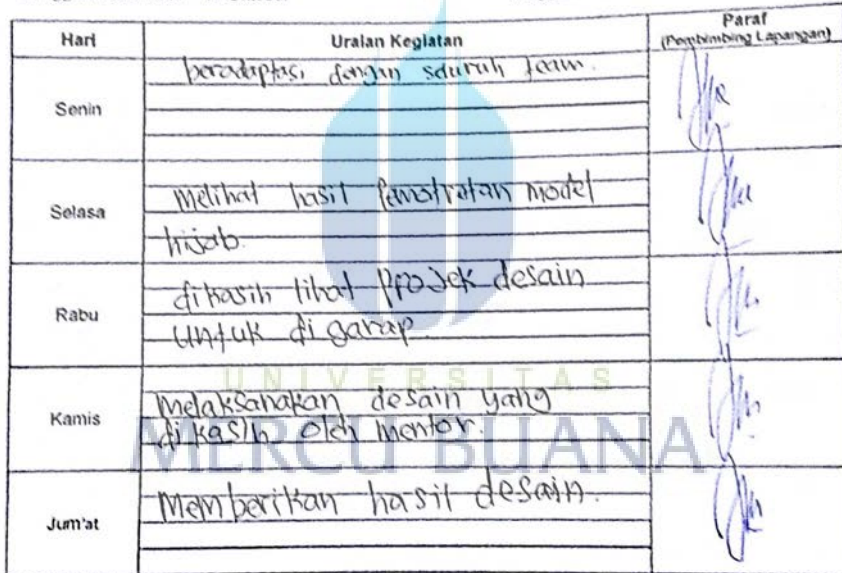 Hari Uraian Kegiatan Paraf
(Pembimbing Lapangan)
Senin
beradaptasi dengan seluruh team.
Selasa
Melihat hasil Pemotretan Model
hijab.
Rabu
dikasih lihat Projek desain
untuk di garap.
UNIVERSITAS
Kamis
Melaksanakan desain yang
dikasih oleh mentor.
MERCU BUANA
Jum'at
Memberikan hasil desain.